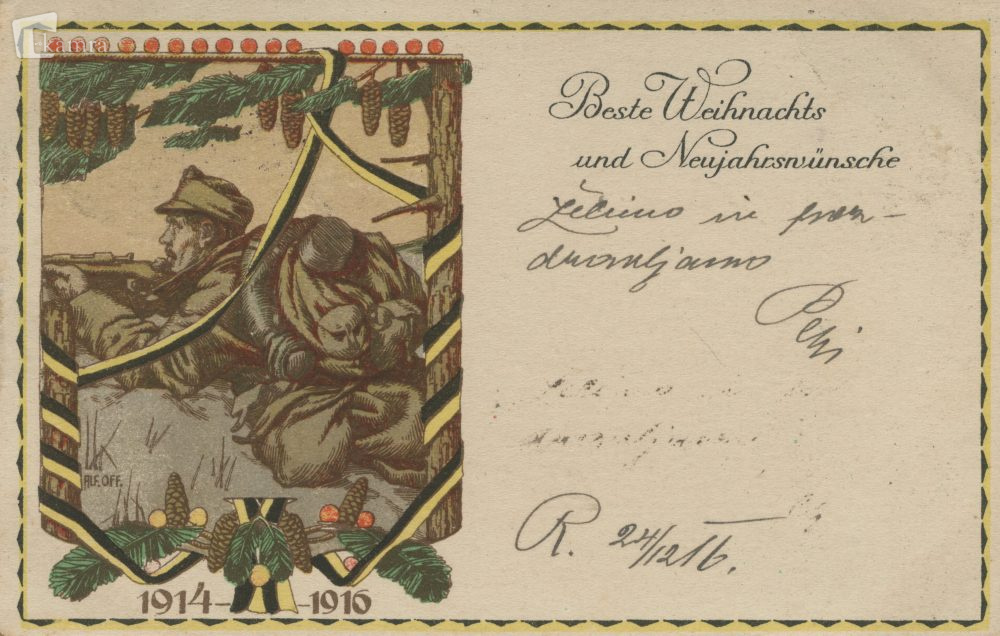 kamra
Beste Weihnachts
und Neujahrswünsche
Želimo in pozdravljamo
Pepi
R. 24/12 16.
ALF. OFF.
1914-1916